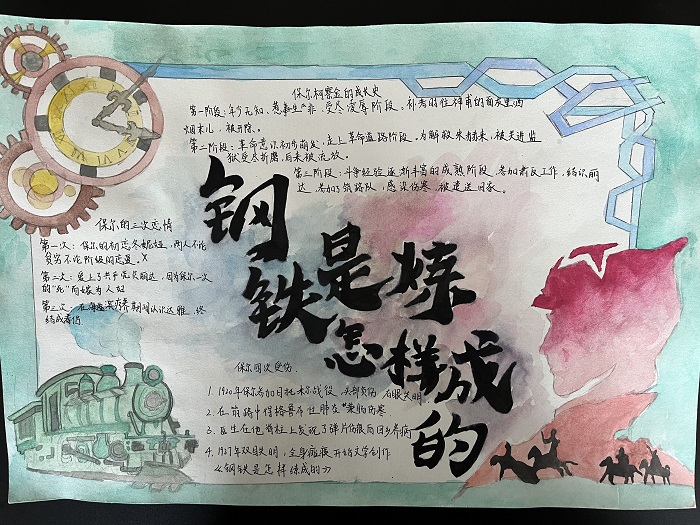 保尔柯察金的成长史
第一阶段:年少无知、惹事生非、受尽凌辱阶段。补考时往神甫的面衣里洒
烟末儿,被开除。
第二阶段:革命意识初步萌发,走上革命道路阶段。为解救朱赫来,被关进监
狱受尽折磨,后来被流放。
第三阶段:斗争经验逐渐丰富的成熟阶段,参加肃反工作,结识丽
达,参加了铁路队,感染伤寒,被遣送回家。
钢铁是怎样炼成的
保尔的三次恋情
第一次:保尔的初恋冬妮娅,两人不论
贫穷不论阶级的恋爱,X
第二次:爱上了共产党员丽达,因为保尔一次
的"死"而嫁为人妇
第三次:在海滨疗养期间认识达雅,终
结成眷侣
保尔四次受伤.
1. 1920年保尔参加日托米尔战役,头部负伤,右眼失明
2. 在筑路中得格鲁布性肺炎兼肠伤寒
3. 医生在他脊柱上发现了碎片伤痕而回乡养病
4. 1927年双眼失明,全身瘫痪开始文学创作
《钢铁是怎样练成的》